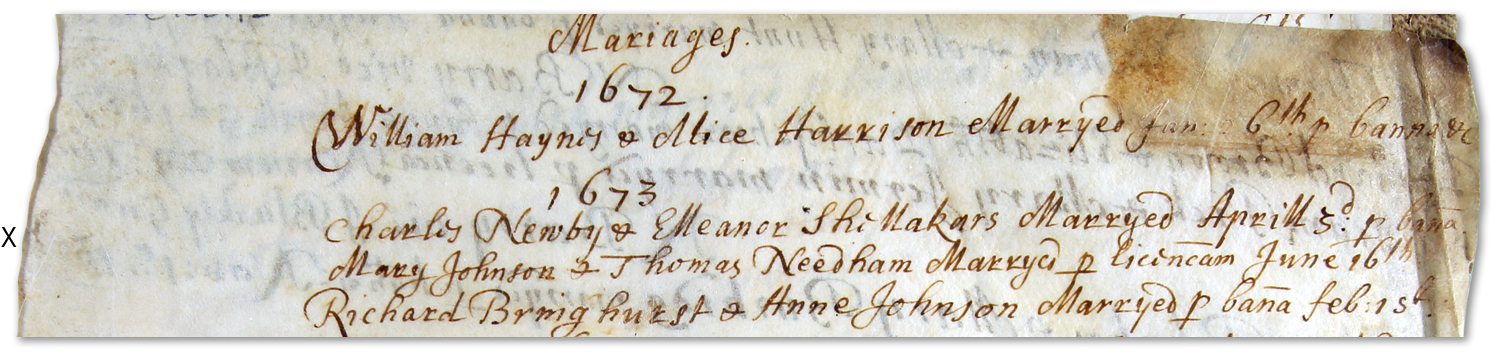 Mariages.
1672.
William Haynes & Alice Harrison Marryed Jan: 6th p banns &c
1673
Charles Newby & Elleanor Marryed Aprill 3d. p bana
X
Mary Johnson & Thomas Needham Marryed p licencam June 16th
Richard Bringhurst & Anne Johnson Marryed p bana feb: 1st.